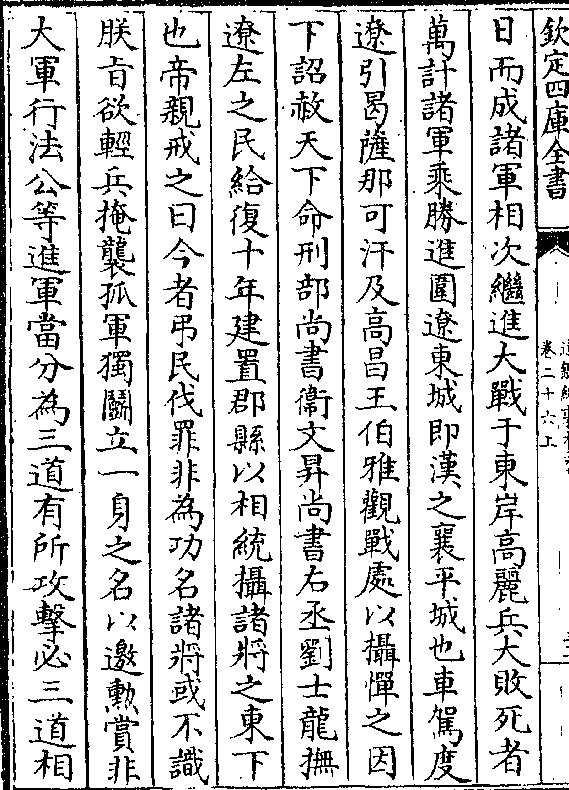 欽定四庫全書
卷二十六上
日而成諸軍相次繼進大戰于東岸高麗兵大敗死者
萬計諸軍乘勝進圍遼東城即漢之襄平城也車駕度
遼引曷薩那可汗及高昌王伯雅觀戰處以攝憚之因
下詔赦天下命刑部尚書衞文昇尚書右丞劉士龍撫
遼左之民給復十年建置郡縣以相統攝諸將之東下
也帝親戒之曰今者弔民伐罪非為功名諸將或不識
朕㫖欲輕兵掩襲孤軍獨鬭立一身之名以邀勲賞非
大軍行法公等進軍當分為三道有所攻擊必三道相